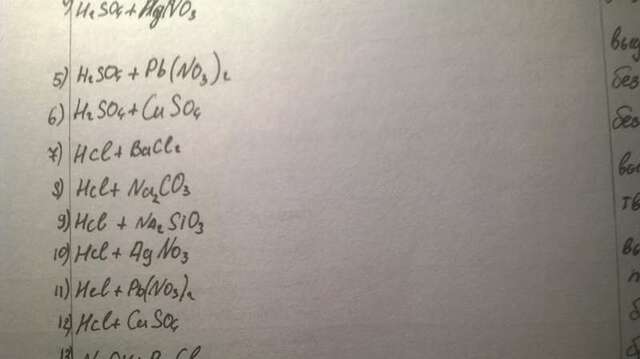 H₂SO₄ + AgNO₃
5) H₂SO₄ + Pb(NO₃)₂
6) H₂SO₄ + CuSO₄
7) HCl + BaCl₂
8) HCl + Na₂CO₃
9) HCl + NA₂SiO₃
10) HCl + AgNO₃
11) HCl + Pb(NO₃)₂
12) HCl + CuSO₄
без
без